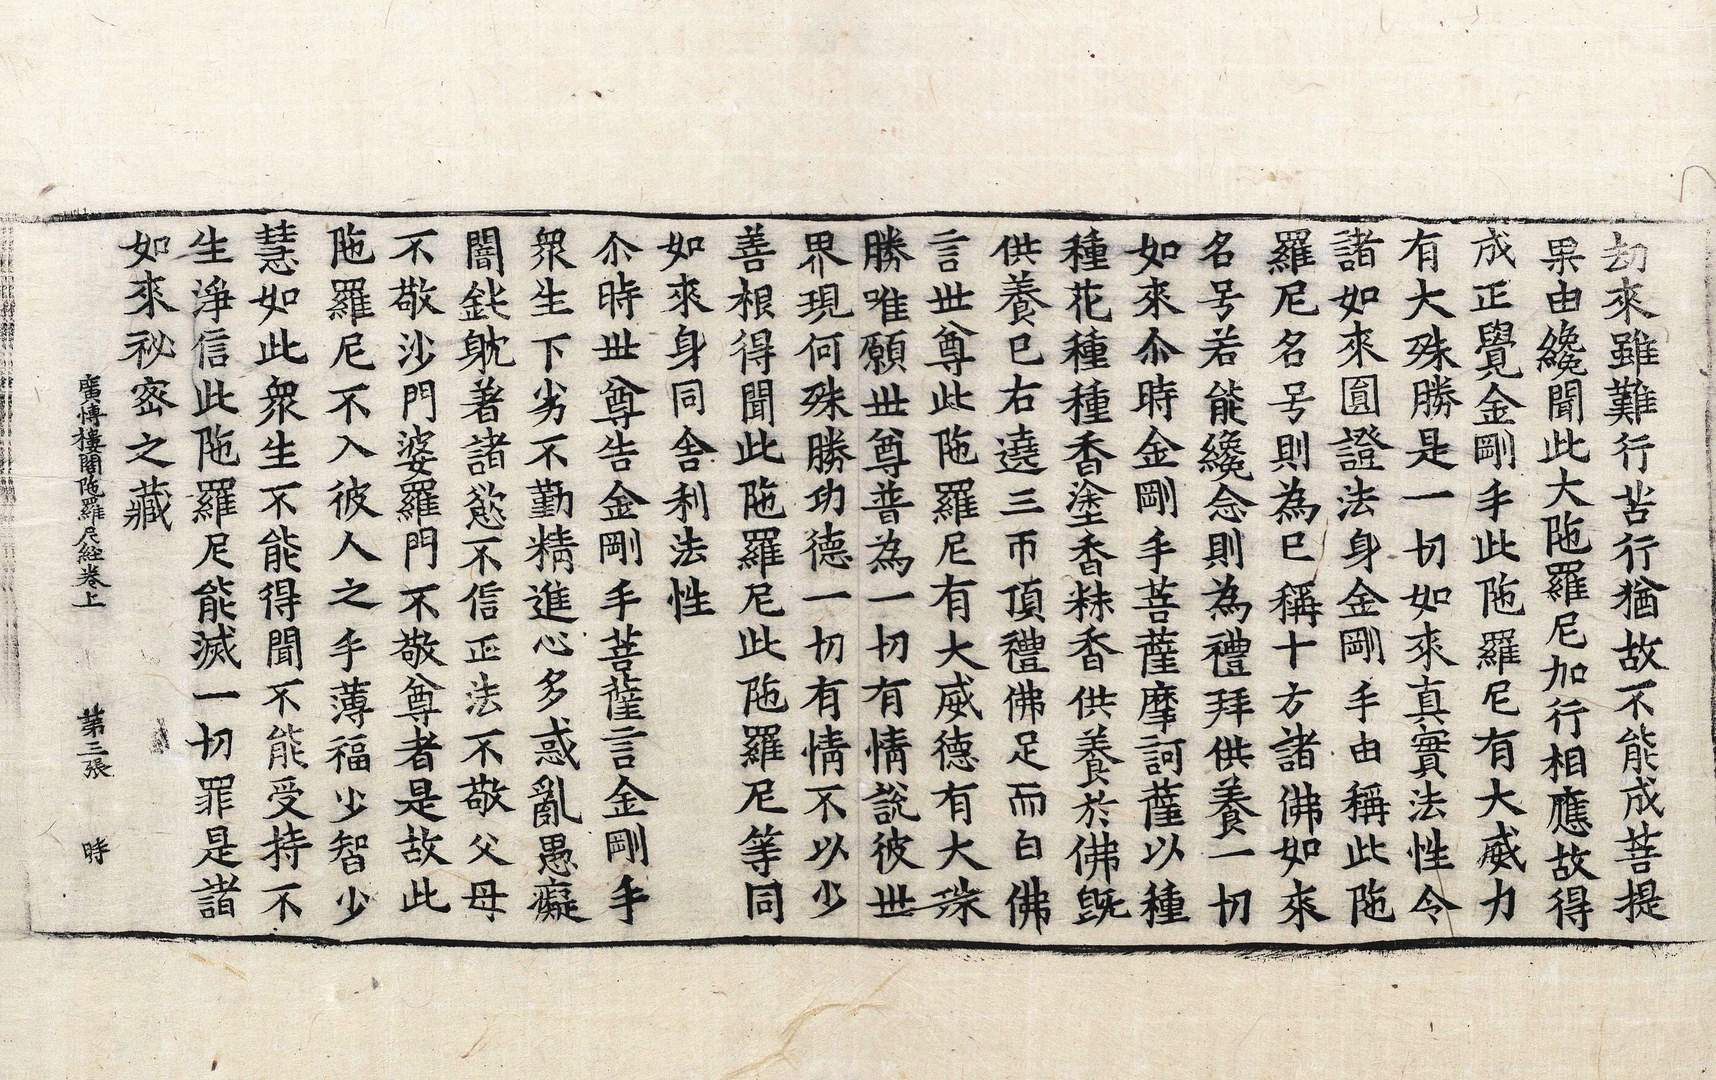 劫來雖難行苦行猶故不能成菩提
果由纔聞此大陁羅尼加行相應故得
成正覺金剛手此陁羅尼有大威力
有大殊勝是一切如來真實法性令
諸如來圓證法身金剛手由稱此陁
羅尼名号則為已稱十方諸佛如來
名号若能纔念則為禮拜供養一切
如來尒時金剛手菩薩摩訶薩以種
種花種種香塗香粖香供養於佛既
供養已右遶三帀頂禮佛足而白佛
言世尊此陁羅尼有大威德有大殊
勝唯願世尊普為一切有情說彼世
界現何殊勝功德一切有情不以少
善根得聞此陁羅尼此陁羅尼等同
如來身同舍利法性
尒時世尊告金剛手菩薩言金剛手
衆生下劣不勤精進心多惑亂愚癡
闇鈍躭著諸慾不信正法不敬父母
不敬沙門婆羅門不敬尊者是故此
陁羅尼不入彼人之手薄福少智少
慧如此衆生不能得聞不能受持不
生淨信此陁羅尼能滅一切罪是諸
如來祕密之藏
廣愽樓閣陁羅尼經卷上 第三張 時